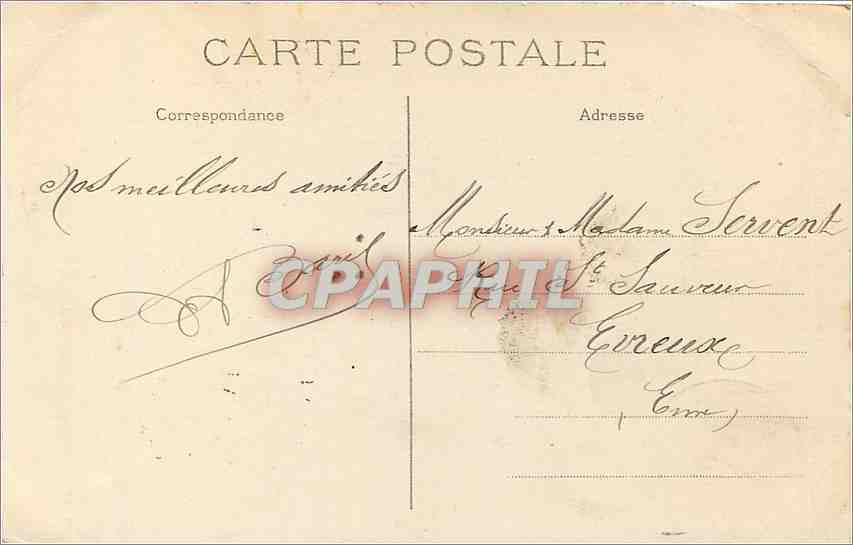 CARTE POSTALE
Correspondance
Adresse
Nos meilleures amitiés
Baril
Monsieur & Madame Servent
Rue St Sauveur
Evreux
(Eure)
CPAPHIL